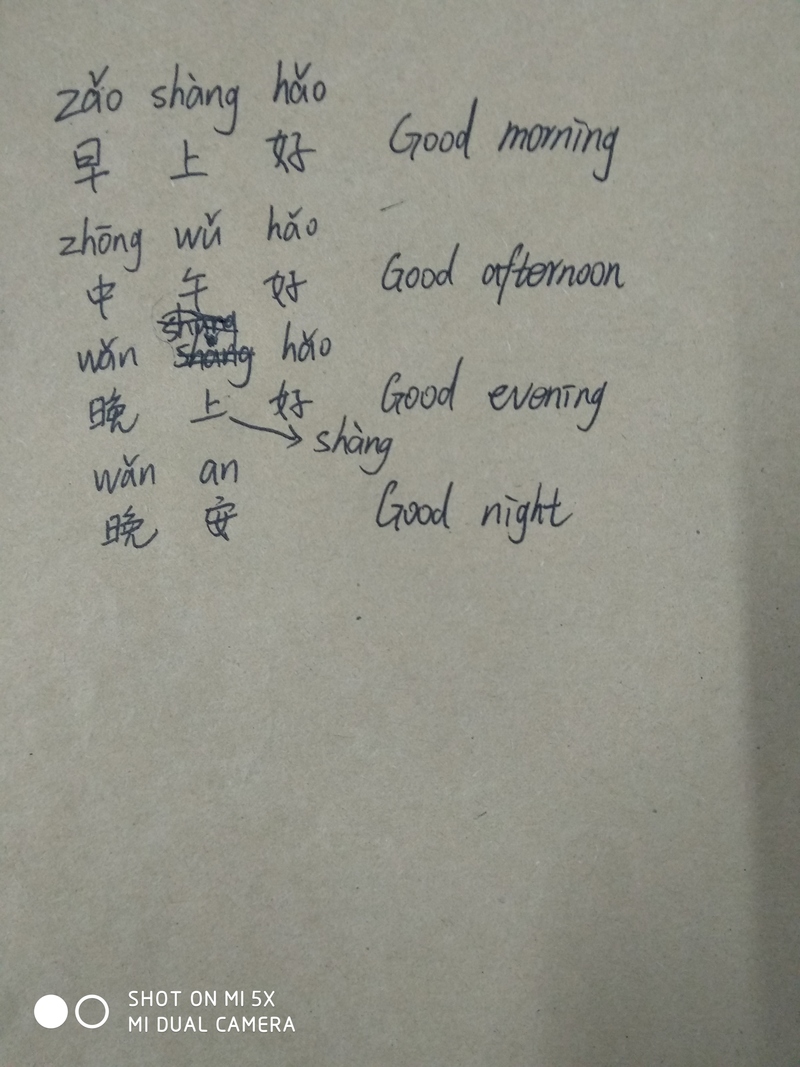 zǎo shàng hǎo
早 上 好 Good morning
zhōng wǔ hǎo
中 午 好 Good afternoon
wǎn hǎo
晚 上 好 Good evening
shàng
wǎn an
晚 安 Good night
SHOT ON MI 5X
MI DUAL CAMERA